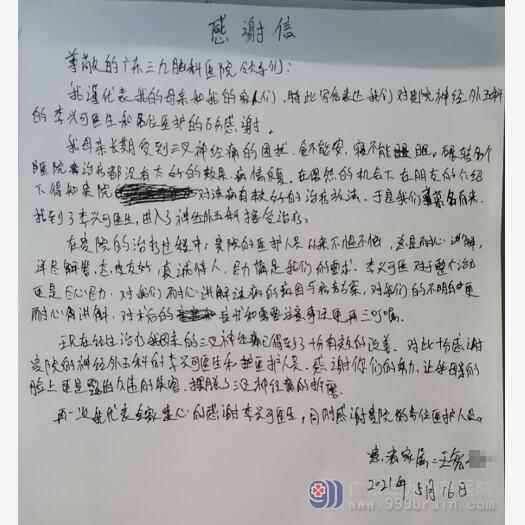 感谢信
尊敬的广东三九脑科医院领导们：
我谨代表我的母亲和我的家人们，特此写信表达我们对贵院神经外五科
的李兴河医生和各位医护的感谢。
我母亲长期受到三叉神经痛的困扰，食不能安，寝不能眠。辗转多个
医院治疗都没有太好的效果，病情反复。在偶然的机会下在朋友的介绍
下得知贵院对该病有较好的治疗方法，于是我们慕名而来，
找到了李兴河医生，进入了神经外五科接受治疗。
在贵院的治疗过程中，贵院的医护人员从来不怕不怕，总是耐心讲解，
详尽解答，态度友好，真诚待人，尽力满足我们的要求。李兴河医对于整个治
更是尽心尽力，对我们耐心讲解该病的病因与方案，对我们的不明白更
耐心讲解，对术后的需要注意事项更再三叮嘱。
现在经过治疗我母亲的三叉神经痛已得到了十分有效的改善。对此十分感谢
贵院的神经外五科的李兴河医生和医护人员。感谢你们的努力，让我母亲的
脸上更是露出久违的笑容，摆脱了三叉神经痛的折磨。
再一次代表全家衷心的感谢李兴河医生，同时感谢贵院的各位医护人员。
患者家属：王
2021年5月16日
医院
999brain.com